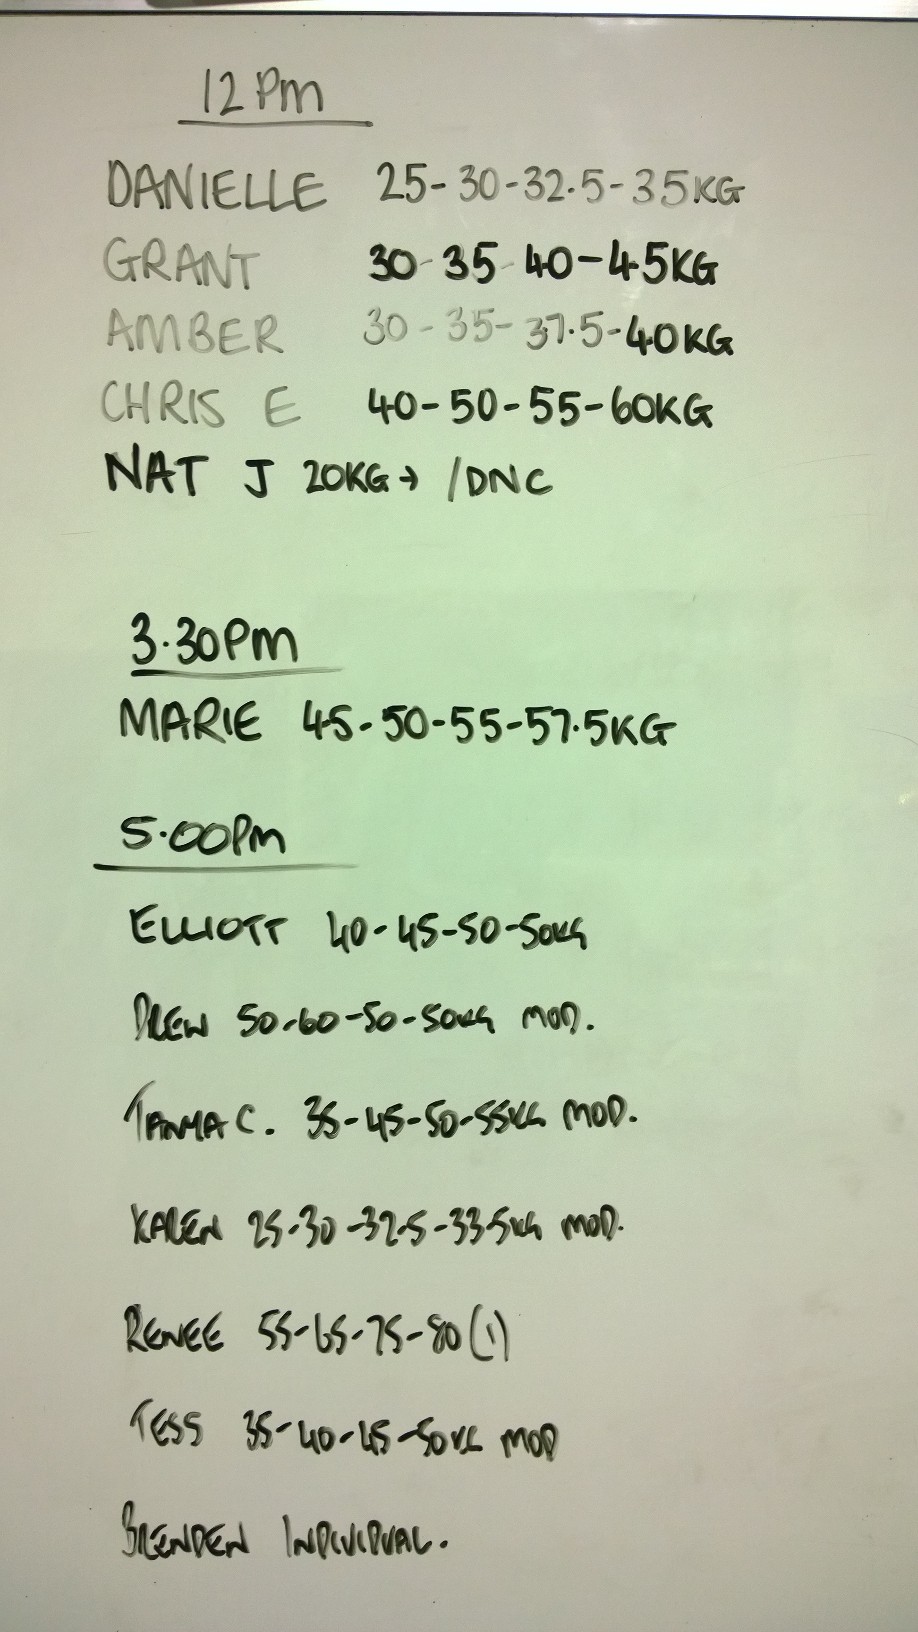 12 Pm
DANIELLE 25-30-32.5-35KG
GRANT 30-35-40-45KG
AMBER 30-35-37.5-40KG
CHRIS E 40-50-55-60KG
NAT J 20KG→ /DNC
3.30Pm
MARIE 45-50-55-57.5KG
5.00Pm
ELLIOTT 40-45-50-50KG
DREW 50-60-50-50KG MOD.
TANYA C. 35-45-50-55KG MOD.
KAREN 25-30-32.5-33.5KG MOD.
RENEE 55-65-75-80(1)
TESS 35-40-45-50KG MOD
BRENDEN INDIVIDUAL.